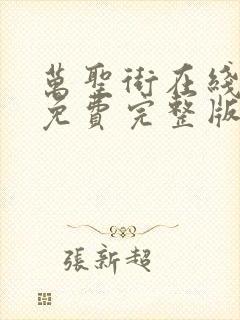 萬聖街在綫
免費完整版
張新超